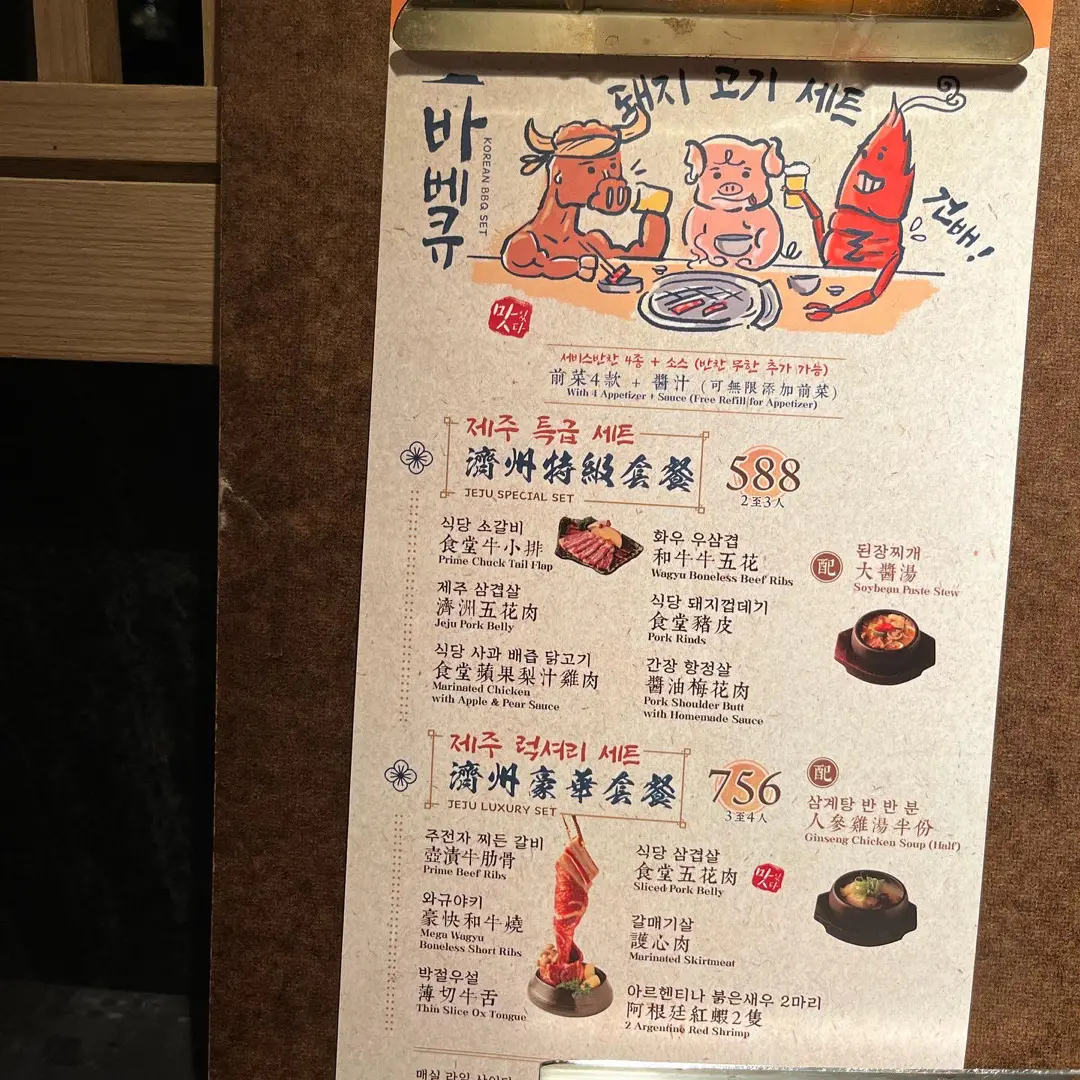 바베큐
KOREAN BBQ SET
돼지 고기 세트
건배!
맛있다
서비스반찬 4종 + 소스 (반찬 무한 추가 가능)
前菜4款 + 醬汁 (可無限添加前菜)
With 4 Appetizer + Sauce (Free Refill for Appetizer)
제주 특급 세트
濟州特級套餐
JEJU SPECIAL SET
588
2至3人
식당 소갈비
食堂牛小排
Prime Chuck Tail Flap
제주 삼겹살
濟洲五花肉
Jeju Pork Belly
식당 사과 배즙 닭고기
食堂蘋果梨汁雞肉
Marinated Chicken
with Apple & Pear Sauce
화우 우삼겹
和牛牛五花
Wagyu Boneless Beef Ribs
식당 돼지껍데기
食堂豬皮
Pork Rinds
간장 항정살
醬油梅花肉
Pork Shoulder Butt
with Homemade Sauce
配
된장찌개
大醬湯
Soybean Paste Stew
제주 럭셔리 세트
濟州豪華套餐
JEJU LUXURY SET
756
3至4人
주전자 찌든 갈비
壺漬牛肋骨
Prime Beef Ribs
와규야키
豪快和牛燒
Mega Wagyu
Boneless Short Ribs
박절우설
薄切牛舌
Thin Slice Ox Tongue
식당 삼겹살
食堂五花肉
Sliced Pork Belly
맛있다
갈매기살
護心肉
Marinated Skirtmeat
아르헨티나 붉은새우 2마리
阿根廷紅蝦2隻
2 Argentine Red Shrimp
配
삼계탕 반 반 분
人參雞湯半份
Ginseng Chicken Soup (Half)